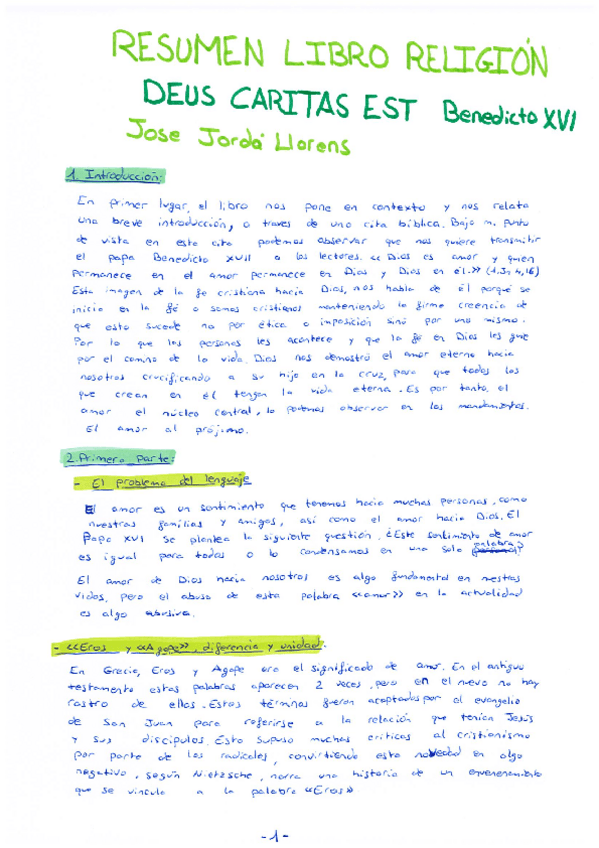 RESUMEN LIBRO RELIGIÓN
DEUS CARITAS EST Benedicto XVI
Jose Jordá Llorens
1. Introducción:
En primer lugar, el libro nos pone en contexto y nos relata
una breve introducción, a traves de una cita bíblica. Bajo mi punto
de vista en esta cita podemos observar que nos quiere transmitir
el papa Benedicto XVII a los lectores. «Dios es amor y quien
permanece en el amor permanece en Dios y Dios en él.» (1.Jn 4,16)
Esta imagen de la fe cristiana hacia Dios, nos habla de él porqué se
inicia en la fé o somos cristianos manteniendo la firme creencia de
que esto sucede no por ética o imposición sinó por uno mismo.
Por lo que las personas les acontece y que la fé en Dios les guie
por el camino de la vida. Dios nos demostró el amor eterno hacia
nosotros crucificando a su hijo en la cruz, para que todos los
que crean en él tengan la vida eterna. Es por tanto, el
amor el núcleo central, lo podemos observar en los mandamientos.
El amor al prójimo.
2.Primera Parte:
- El problema del lenguaje
El amor es un sentimiento que tenemos hacia muchas personas, como
nuestras familias y amigos, así como el amor hacia Dios. El
Papa XVI se plantea la siguiente questión. ¿Este sentimiento de amor
es igual para todos o lo condensamos en una sola palabra?
El amor de Dios hacia nosotros es algo fundamental en nuestras
vidas, pero el abuso de esta palabra «amor» en la actualidad
es algo abusiva.
- «Eros y «Agape», diferencia y unidad.
En Grecia, Eros y Agape era el significado de amor. En el antiguo
testamento estas palabras aparecen 2 veces, pero en el nuevo no hay
rastro de ellas. Estos términos fueron aceptados por el evangelio
de San Juan para referirse a la relación que tenían Jesús
y sus discípulos. Esto supuso muchas críticas al cristianismo
por parte de los radicales, convirtiendo esta novedad en algo
negativo, según Nietzsche, narra una historia de un envenenamiento
que se vincula a la palabra «Eros»
-1-